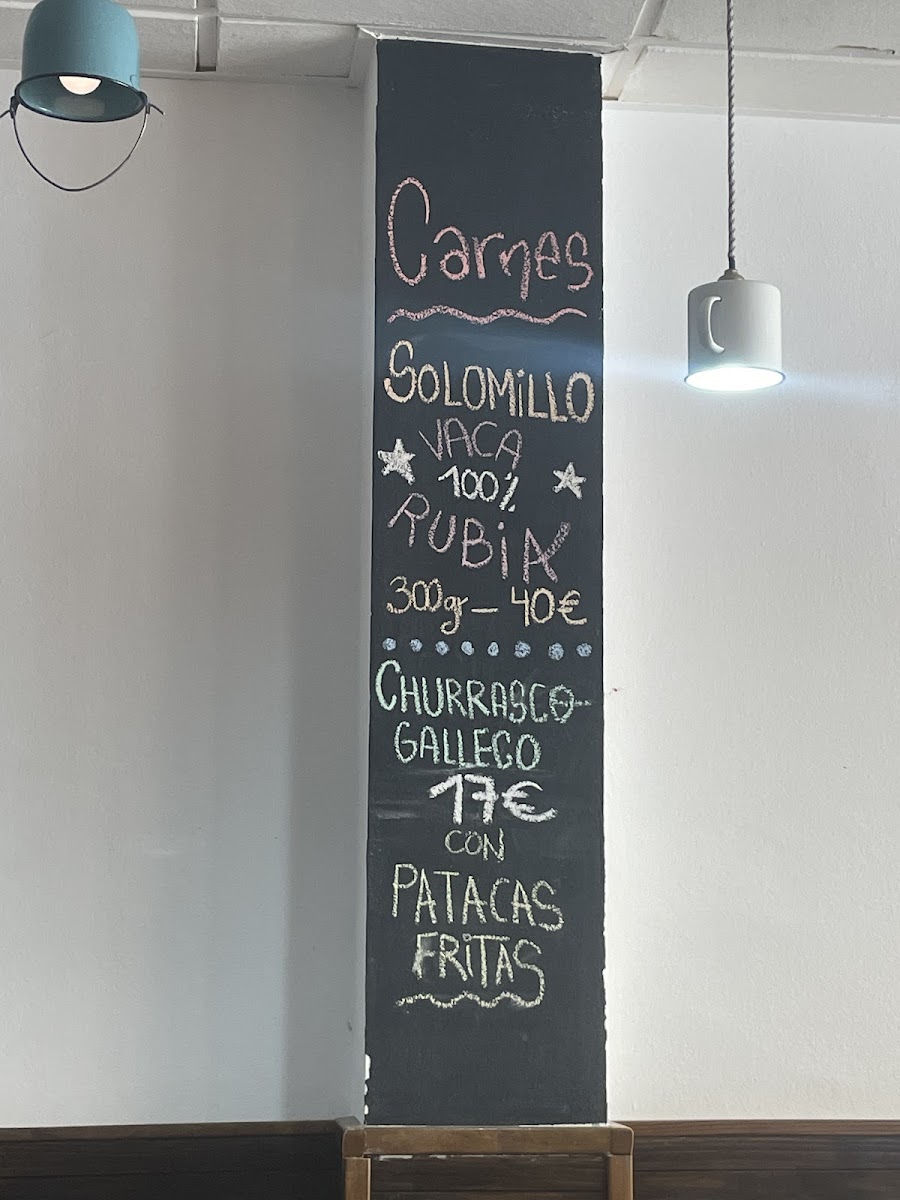 Carnes
SOLOMILLO
VACA
100%
RUBIA
300gr - 40€
CHURRASCO
GALLEGO
17€
CON
PATACAS
FRITAS